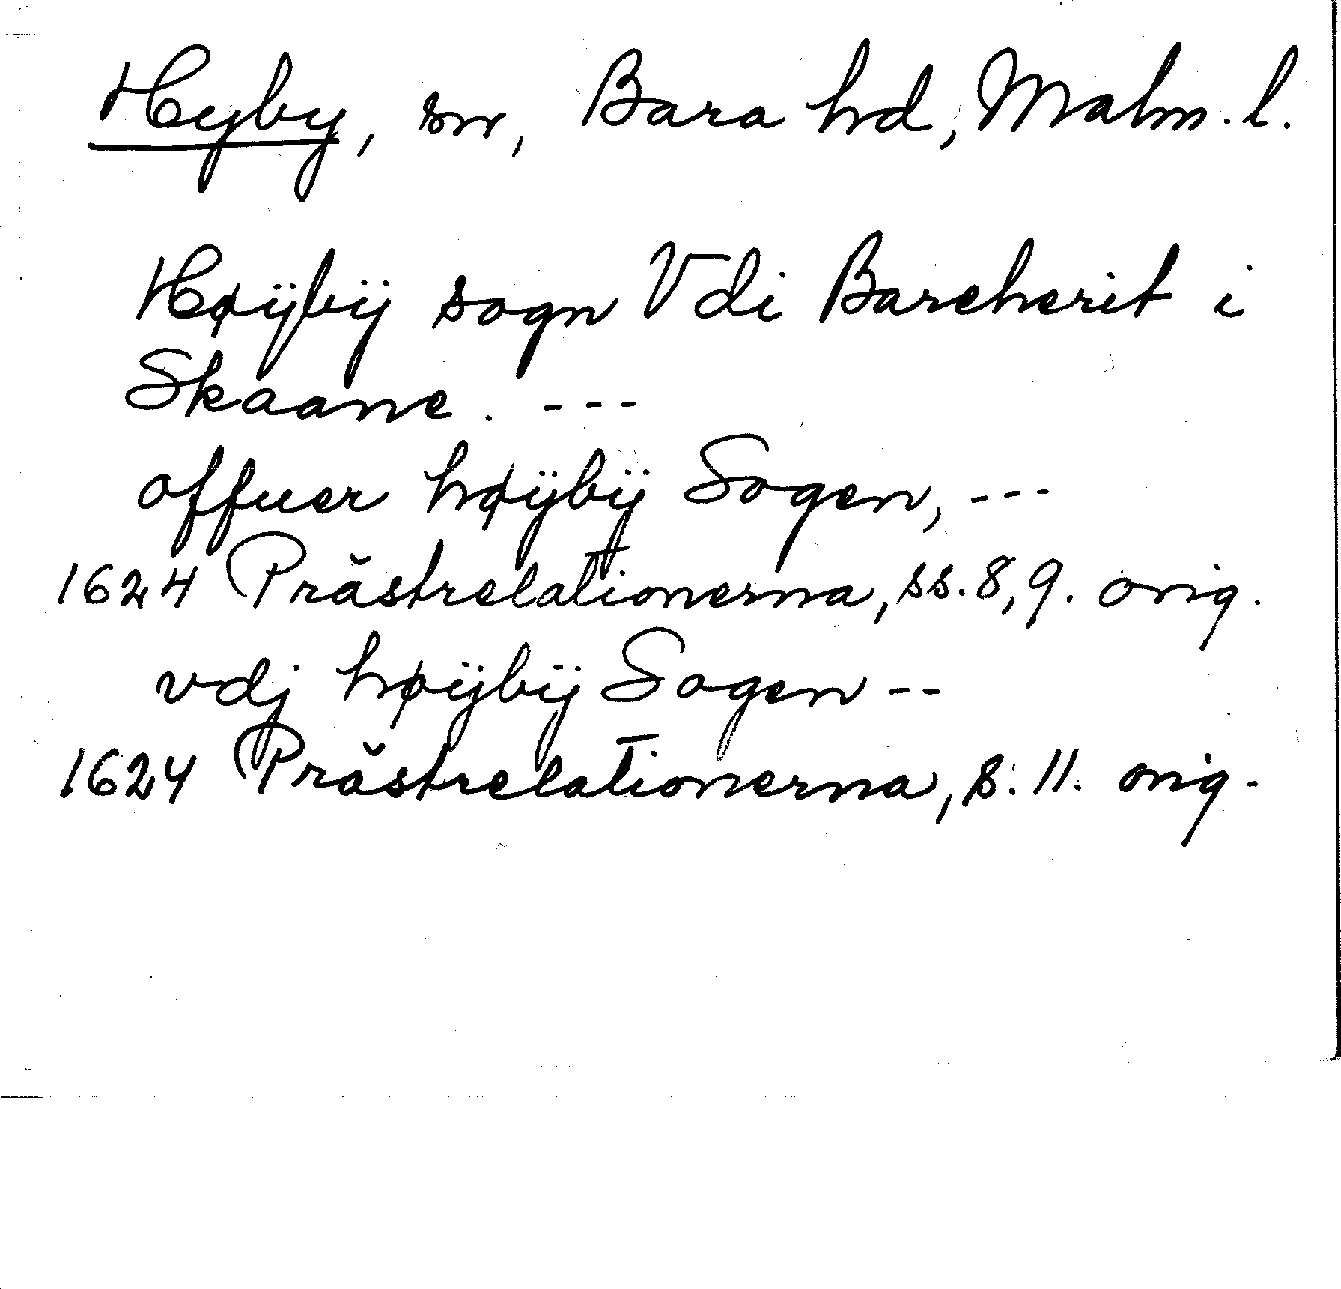 Hyby, sn, Bara hd, Malm. l.
Høÿbÿ sogn Vdi Bareherit i
Skaane. ---
offuer høÿbÿ Sogen, ---
1624 Prästrelationerna, ss. 8, 9. orig.
vdj høÿbÿ Sogen --
1624 Prästrelationerna, s. 11. orig.